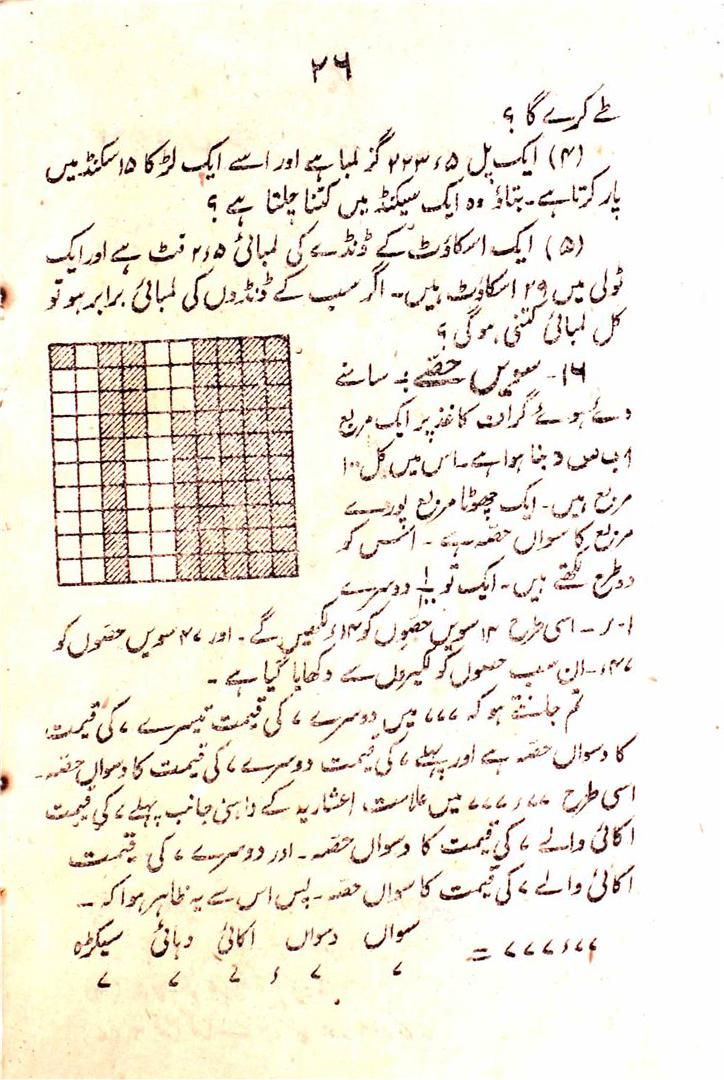 ۲۶
طے کرے گا ؟
(۴) ایک پل ۲۲۳٫۵ گز لمبا ہے اور اسے ایک لڑکا ۱۵ سکنڈ میں
پار کرتا ہے۔ بتاؤ وہ ایک سیکنڈ میں کتنا چلتا ہے ؟
(۵) ایک اسکاؤٹ کے ڈنڈے کی لمبائی ۲٫۵ فٹ ہے اور ایک
ٹولی میں ۲۹ اسکاؤٹ ہیں۔ اگر سب کے ڈنڈوں کی لمبائی برابر ہو تو
کل لمبائی کتنی ہوگی ؟
۱۶۔ سویں حصّے :۔ سامنے
دئے ہوئے گراف کاغذ پر ایک مربع
ا ب س د بنا ہوا ہے۔ اس میں کل ۱۰۰
مربع ہیں۔ ایک چھوٹا مربع پورے
مربع کا سواں حصّہ ہے ۔ اس کو
دو طرح لکھتے ہیں۔ ایک تو ۱/۱۰۰ دوسرے
۰۱ر ۔ اسی طرح ۱۴ سویں حصّوں کو ۱۴ء لکھیں گے ۔ اور ۴۷ سویں حصّوں کو
۴۷ء۔ ان سب حصوں کو لکیروں سے دکھایا گیا ہے ۔
تم جانتے ہو کہ ۷۷۷ میں دوسرے ۷ کی قیمت تیسرے ۷ کی قیمت
کا دسواں حصّہ ہے اور پہلے ۷ کی قیمت دوسرے ۷ کی قیمت کا دسواں حصّہ۔
اسی طرح ۷۷۷٫۷۷ میں علامت اعشاریہ کے داہنی جانب پہلے ۷ کی قیمت
اکائی والے ۷ کی قیمت کا دسواں حصّہ ۔ اور دوسرے ۷ کی قیمت
اکائی والے ۷ کی قیمت کا سواں حصّہ ۔ پس اس سے یہ ظاہر ہوا کہ ۔
سواں دسواں اکائی دہائی سیکڑہ
۷۷۷٫۷۷ =
۷ ۷ ء ۷ ۷ ۷